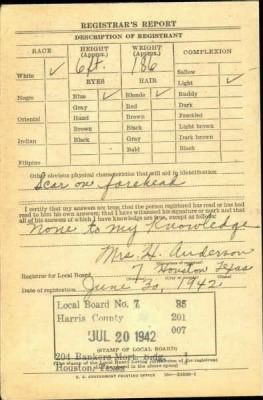 REGISTRAR'S REPORT
DESCRIPTION OF REGISTRANT
RACE HEIGHT (Approx.) WEIGHT (Approx.) COMPLEXION
White ✓ 6 ft. 186 Sallow
EYES HAIR Light ✓
Negro Blue ✓ Blonde ✓ Ruddy
Gray Red Dark
Oriental Hazel Brown Freckled
Brown Black Light brown
Indian Black Gray Dark brown
Bald Black
Filipino
Other obvious physical characteristics that will aid in identification
Scar on forehead
I certify that my answers are true; that the person registered has read or has had
read to him his own answers; that I have witnessed his signature or mark and that
all of his answers of which I have knowledge are true, except as follows:
None to my Knowledge
Mrs. H. Anderson
Registrar for Local Board 7 Houston Texas
Date of registration June 30, 1942
Local Board No. 7 35
Harris County 201
JUL 20 1942 007
(STAMP OF LOCAL BOARD)
204 Bankers Mort. Bldg. 1
Houston, Texas
U. S. GOVERNMENT PRINTING OFFICE